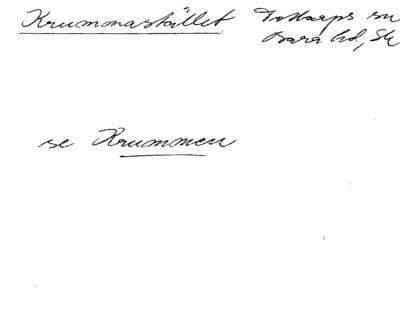 Krummastället Tottarps sn
Bara hd, Sk
se Krummen